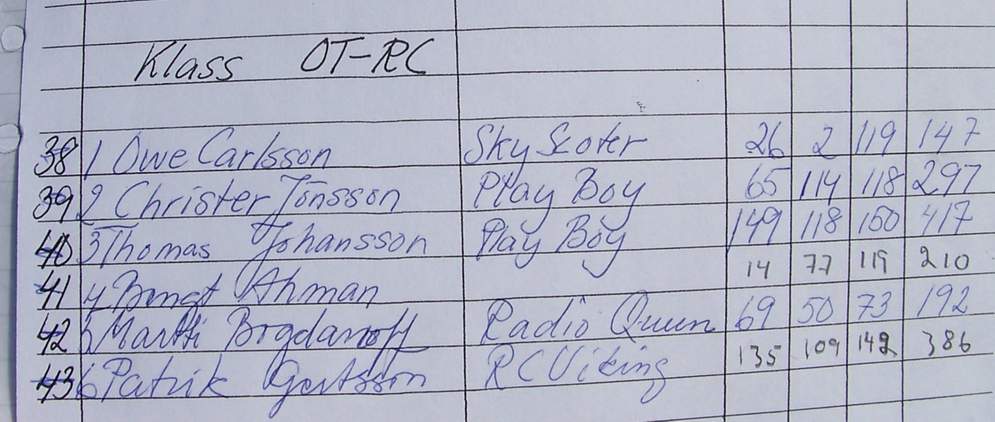 Klass OT-RC
38 1 Owe Carlsson Sky Scoter 26 2 119 147
39 2 Christer Jönsson Play Boy 65 114 118 297
40 3 Thomas Johansson Play Boy 149 118 150 417
41 4 Bengt Åhman 14 77 119 210
42 5 Martti Bogdanoff Radio Queen 69 50 73 192
43 6 Patrik Gertsson RC Viking 135 109 142 386